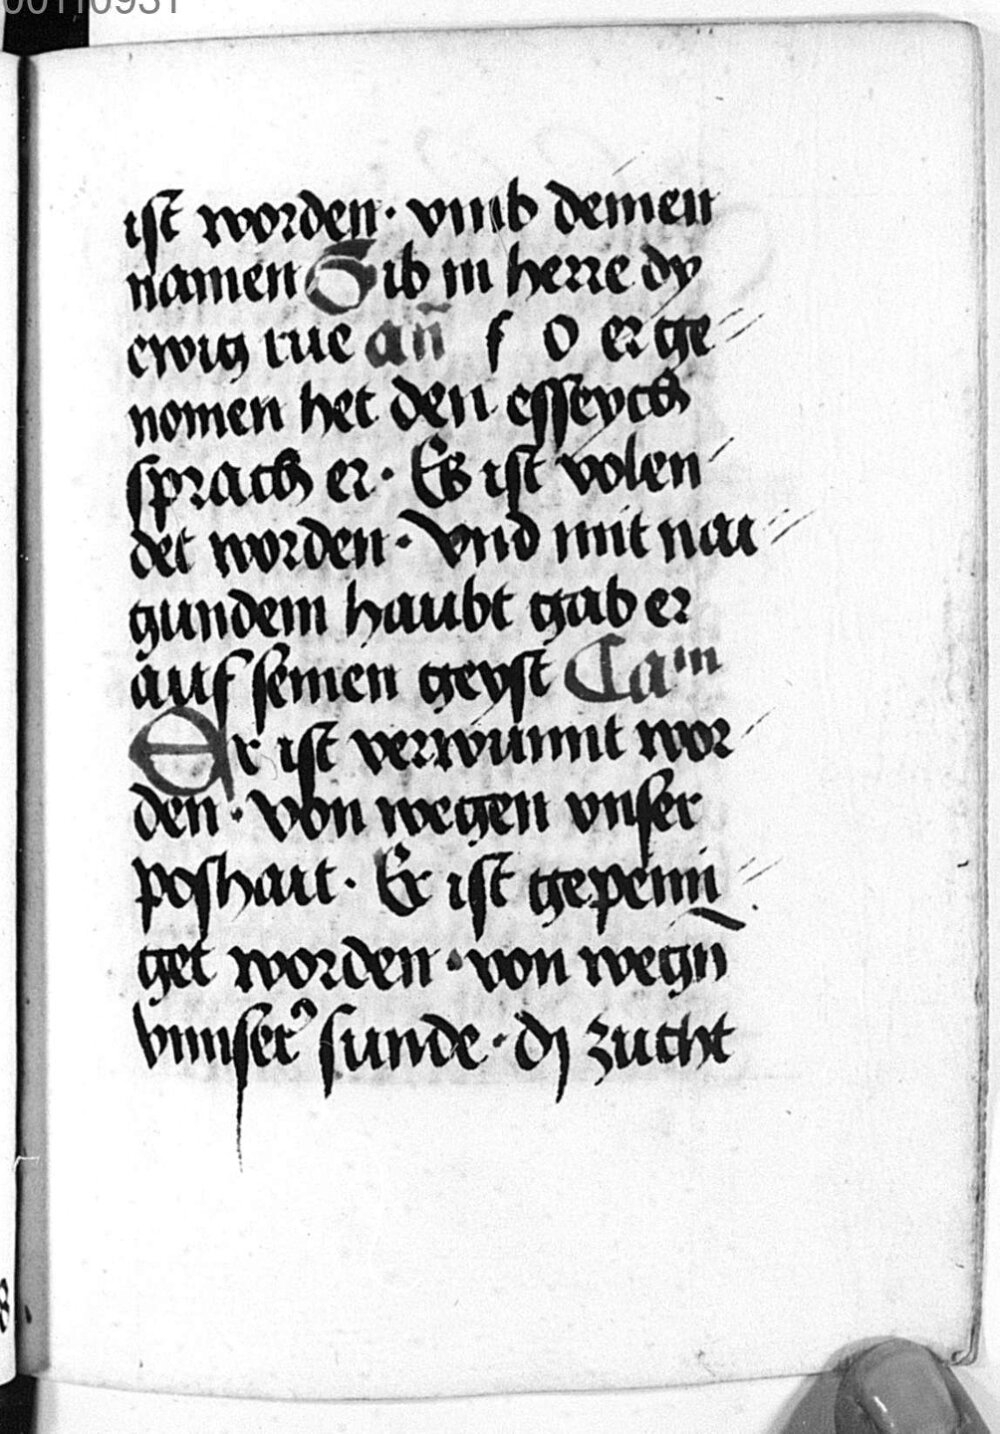 00110931
ist worden · vmb deinen
namen Gib in herre dy
ewig rue an̄ s o er ge⸗
nomen het den essÿch
sprach er · Es ist volen⸗
det worden · Vnd mit nai⸗
gundem haubt gab er
auf seinen geyst Caⁱⁿ
Er ist verwunnt wor⸗
den · von wegen vnser
poshait · Er ist gepeini⸗
get worden · von wegn̄
vnnser᾿ sunde · dj zucht